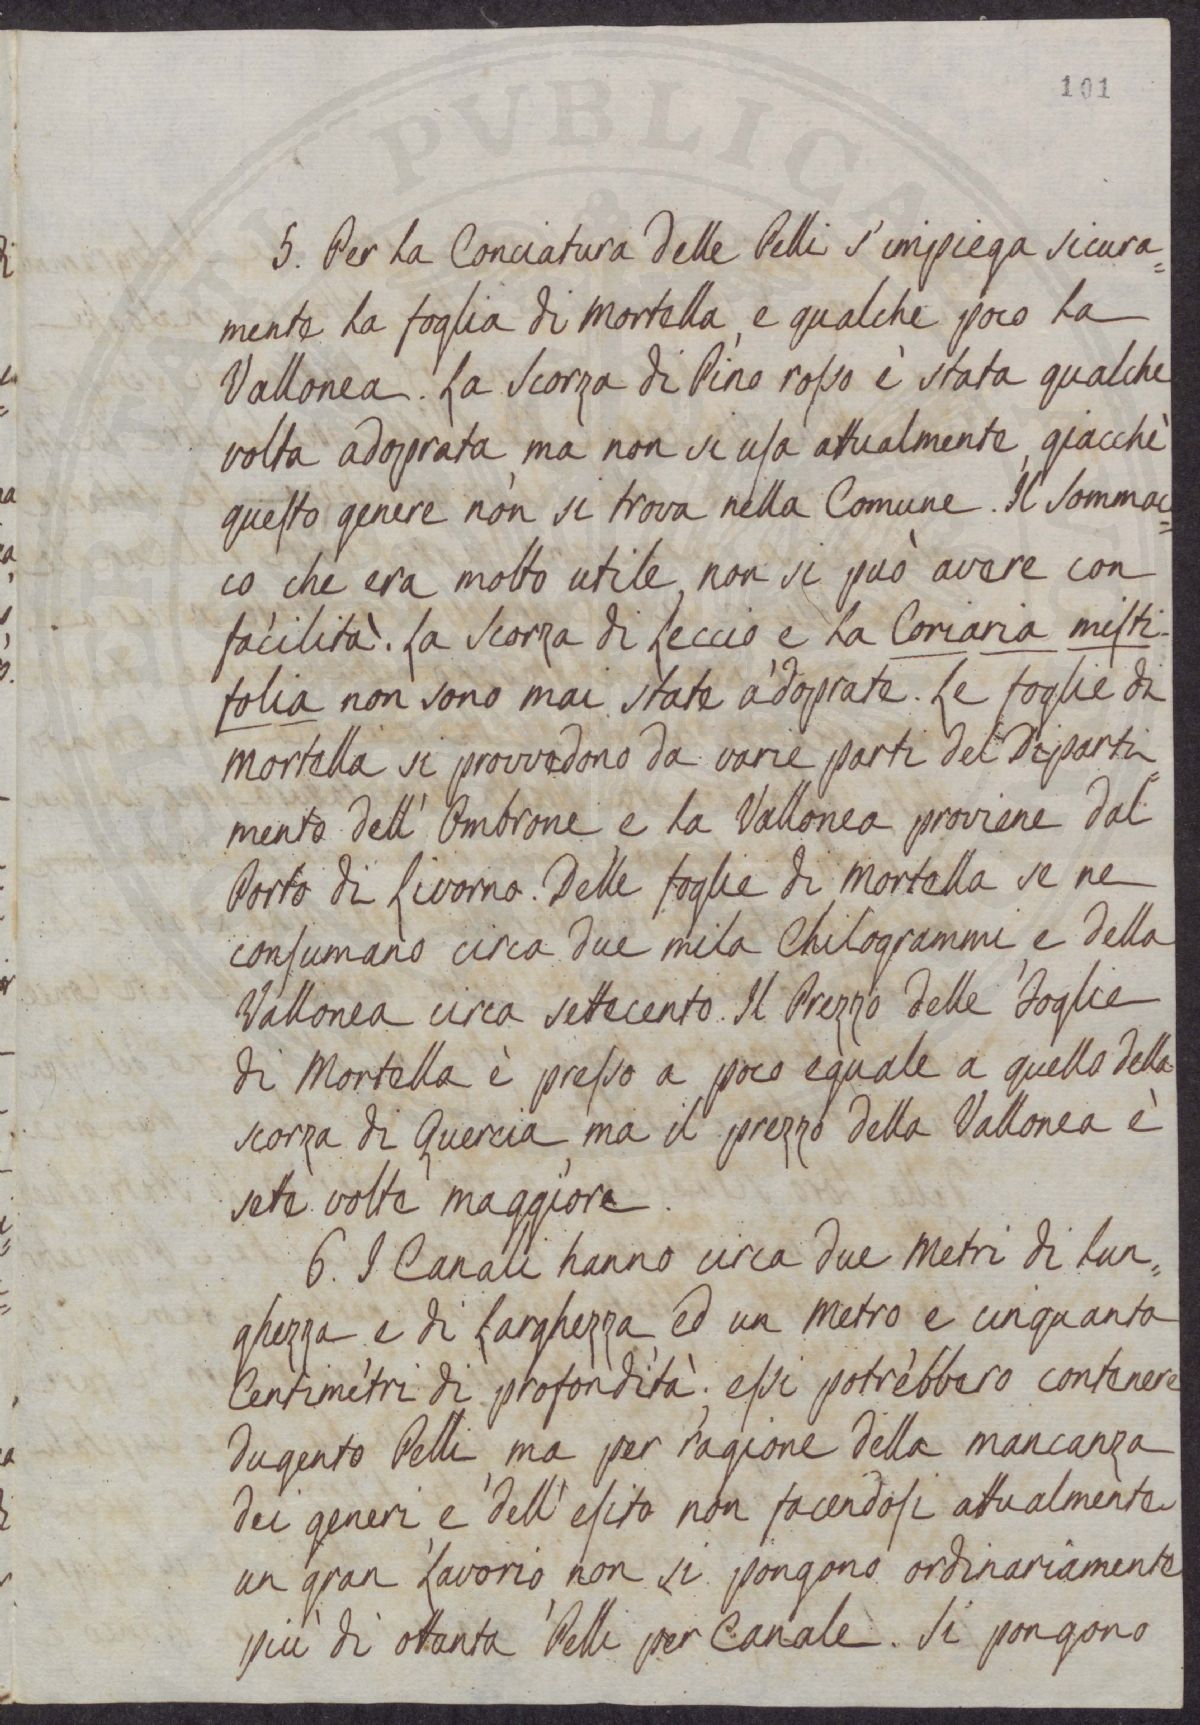 101
5. Per la Conciatura delle Pelli s'impiega sicura=
mente la foglia di Mortella, e qualche poco la
Vallonea. La Scorza di Pino rosso è stata qualche
volta adoprata, ma non si usa attualmente, giacchè
questo genere non si trova nella Comune. Il Sommac=
co che era molto utile, non si può avere con
facilità. La Scorza di Leccio e la Coriaria misti-
folia non sono mai state adoprate. Le foglie di
Mortella si provvedono da varie parti del Diparti=
mento dell'Ombrone, e la Vallonea proviene dal
Porto di Livorno. Delle foglie di Mortella se ne
consumano circa due mila Chilogrammi, e della
Vallonea circa settecento. Il Prezzo delle Foglie
di Mortella è presso a poco eguale a quello della
scorza di Quercia, ma il prezzo della Vallonea è
sette volte maggiore.
6. I Canali hanno circa due Metri di lun=
ghezza e di larghezza, ed un Metro e cinquanta
Centimetri di profondità; essi potrebbero contenere
dugento Pelli, ma per ragione della mancanza
dei generi, e dell'esito non facendosi attualmente
un gran lavorio, non si pongono ordinariamente
più di ottanta Pelli per Canale. Si pongono